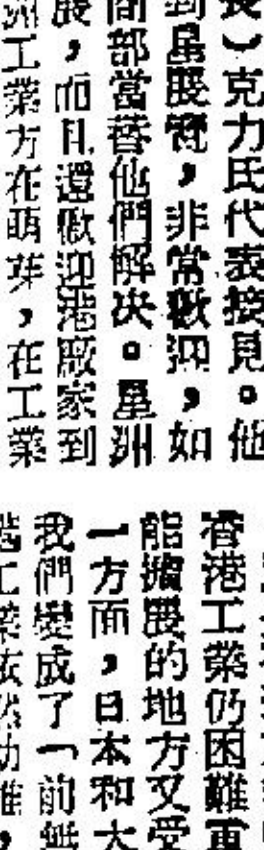 長）克力氏代表接見。他
到星展覽，非常歡迎，如
商部當替他們解決。星洲
展，而且還歡迎港廠家到
洲工業方在萌芽，在工業
香港工業仍困難重
能擴展的地方又受
一方面，日本和大
我們變成了「前無
港工業依然幼稚，